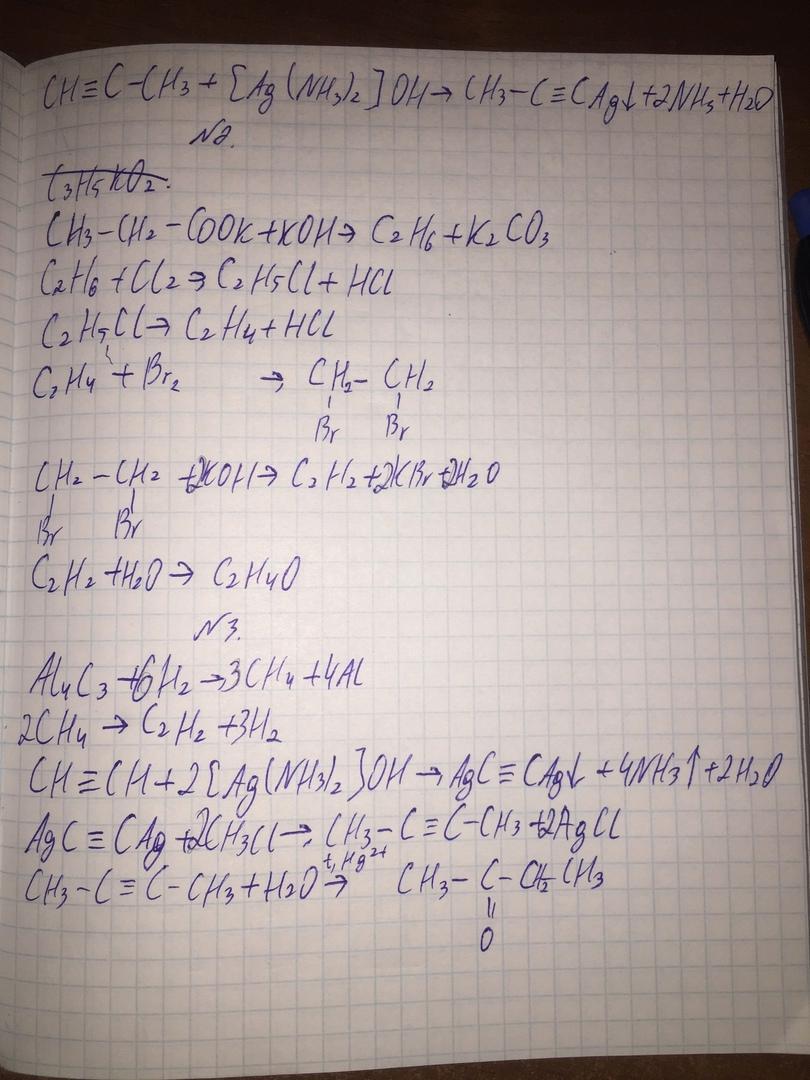 CH≡C-CH3 + [Ag(NH3)2]OH → CH3-C≡CAg↓+2NH3+H2O
N2.
C3H5KO2.
CH3-CH2-COOK+KOH→ C2H6+K2CO3
C2H6+Cl2→C2H5Cl+HCl
C2H5Cl→ C2H4+HCl
C2H4+Br2 → CH2-CH2
Br Br
CH2-CH2 +2KOH→ C2H2+2KBr+2H2O
Br Br
C2H2+H2O→ C2H4O
N3.
Al4C3+6H2→3CH4+4Al
2CH4→ C2H2+3H2
CH≡CH+2[Ag(NH3)2]OH→AgC≡CAg↓+4NH3↑+2H2O
AgC≡CAg+2CH3Cl→ CH3-C≡C-CH3+2AgCl
t, Hg2+
CH3-C≡C-CH3+H2O→ CH3-C-CH2-CH3
||
O